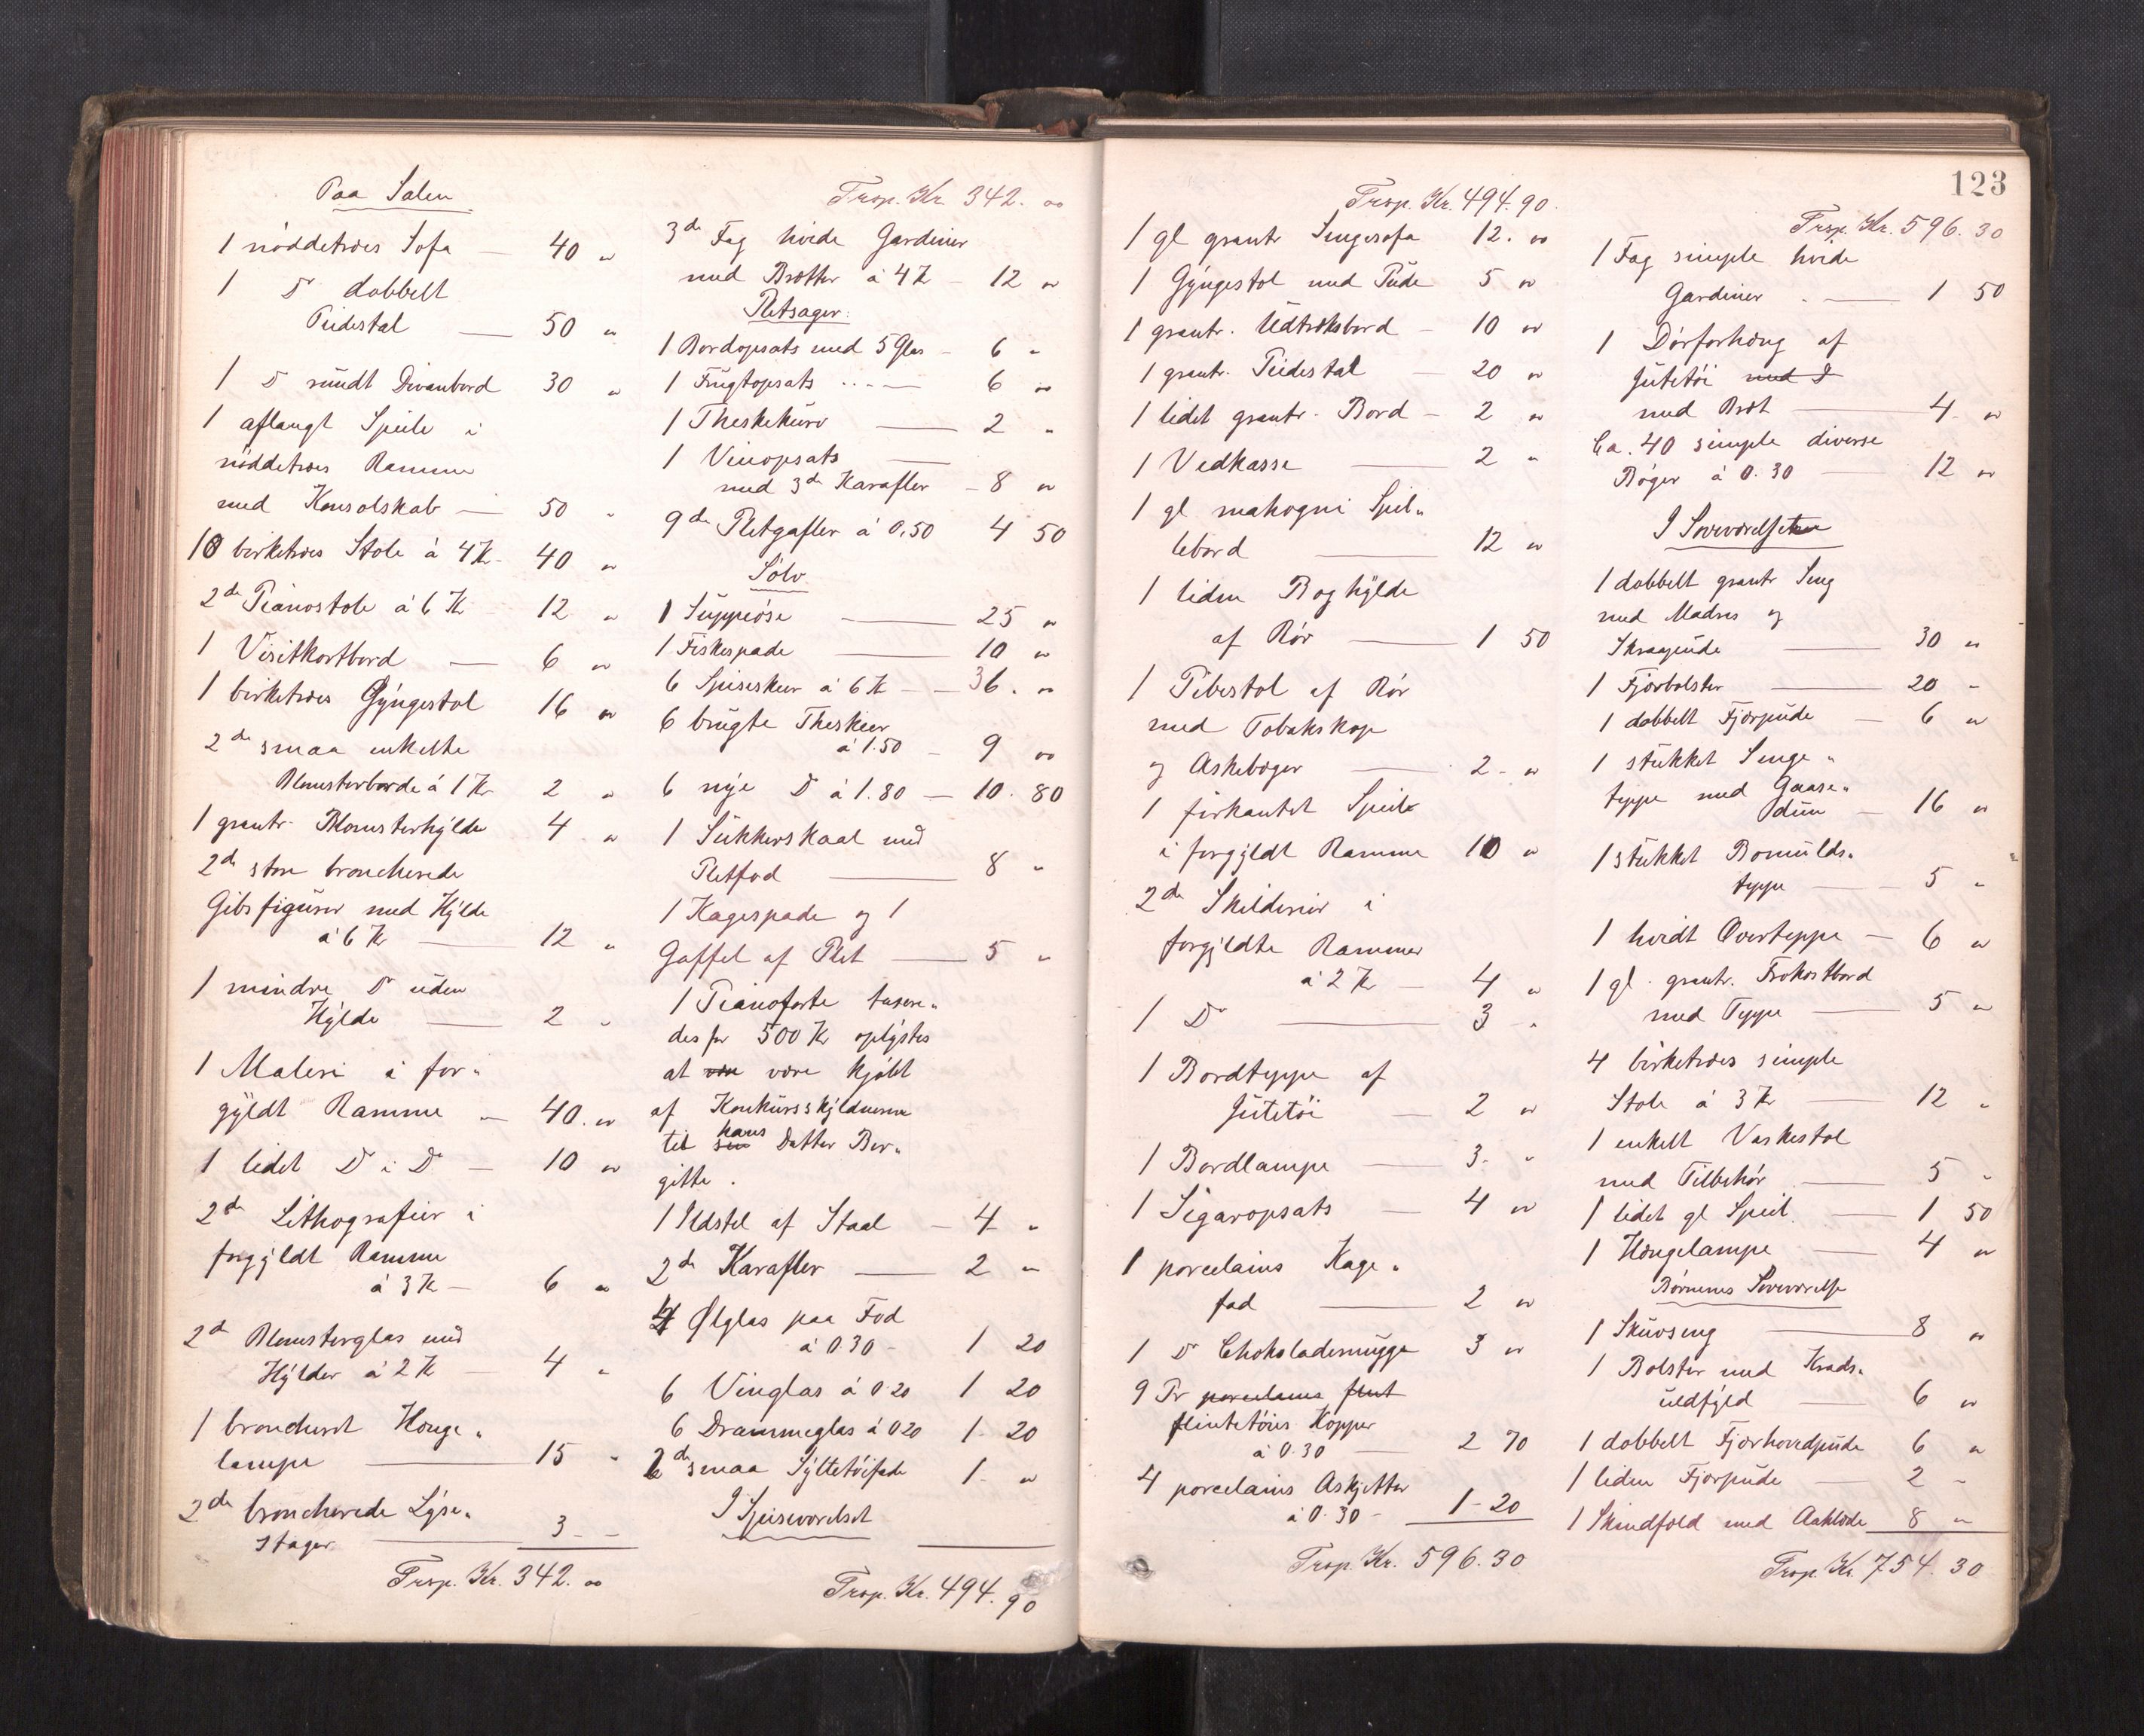 Paa Salen
1 nöddetræs Sofa — 40 "
1 Do dobbelt
Pidestal — 50 "
1 Do rundt Divanbord 30 "
1 aflangt Speile i
nöddetræs Ramme
med Konsolskab — 50 "
10 birketræs Stole á 4 Kr. 40 "
2de Pianostole á 6 Kr 12 "
1 Visitkortbord — 6 "
1 birketræs Gyngestol 16 "
2de smaa enkelte
Blomsterborde á 1 Kr 2 "
1 grantr. Blomsterhylde 4 "
2de store broncherede
Gibsfigurer med Hylde
á 6 Kr — 12 "
1 mindre Do uden
Hylde — 2 "
1 Maleri i for-
gyldt Ramme — 40. "
1 lidet Do i Do — 10 "
2de Lithografier i
forgyldt Ramme
á 3 Kr — 6 "
2de Blomsterglas med
Hylder á 2 Kr — 4 "
1 broncheret Hænge-
lampe — 15 "
2de broncherede Lyse-
stager — 3 - -
Trsp. Kr. 342. 00
Trsp. Kr. 342. 00
3de Fag hvide Gardiner
med Brætter á 4 Kr — 12 "
Pletsager:
1 Bordopsats med 5 Glas — 6 "
1 Frugtopsats — 6 "
1 Theskekurv — 2 "
1 Vinopsats —
med 3de Karafler — 8 "
9de Pletgafler á 0,50 4 50
Sölv
1 Suppeöse — 25 "
1 Fiskespade — 10 "
6 Spiseskeer á 6 Kr — 36. "
6 brugte Theskeer
á 1.50 — 9 00
6 nye Do á 1.80 — 10. 80
1 Sukkerskaal med
Pletfod — 8 "
1 Kagespade og 1
Gaffel af Plet — 5 "
1 Pianoforte taxere-
des for 500 Kr oplystes
at være være kjöbt
af Konkursskyldneren
til sin hans Datter Ber-
gitte.
1 Ildstel af Staal — 4 "
2de Karafler — 2 "
4 Ølglas paa Fod
á 0.30 — 1 20
6 Vinglas á 0.20 1 20
6 Drammeglas á 0.20 1. 20
2de smaa Syltetöifade 1 - "
I Spiseværelset
Trsp. Kr. 494. 90
123
Trsp. Kr. 494. 90.
1 gl grantr Sengesofa 12. 00
1 Gyngestol med Pude 5 "
1 grantr. Udtræksbord — 10 "
1 grantr. Pidestal — 20 "
1 lidet grantr. Bord — 2 "
1 Vedkasse — 2 "
1 gl mahogni Spil-
lebord — 12 "
1 liden Boghylde
af Rör — 1 50
1 Pibestol af Rör
med Tobakskop
og Askebæger — 2 - "
1 firkantet Speil
i forgyldt Ramme 10 "
2de Skilderier i
forgyldte Rammer
á 2 Kr — 4 "
1 Do — 3 "
1 Bordteppe af
Jutetöi — 2 "
1 Bordlampe — 3 - "
1 Sigaropsats — 4 "
1 porcelains Kage-
fad — 2 "
1 Do Chokolademugge 3 "
9 Pr porcelains flint
flintetöies Kopper
á 0.30 — 2 70
4 porcelains Askjetter
á 0.30 — 1 - 20
Trsp. Kr. 596. 30
Trsp. Kr. 596. 30
1 Fag simple hvide
Gardiner — 1 50
1 Dörforhæng af
Jutetöi med B
med Bræt — 4 - "
Ca. 40 simple diverse
Böger á 0.30 — 12 "
I Soveværelset
1 dobbelt grantr Seng
med Madras og
Skraapude — 30 "
1 Fjærbolster — 20 "
1 dobbelt Fjærpude — 6 "
1 stukket Senge-
teppe med Gaase-
dun — 16 "
1 stukket Bomulds-
teppe — 5 "
1 hvidt Overteppe — 6 "
1 gl. grantr. Frokostbord
med Teppe — 5 "
4 birketræs simple
Stole á 3 Kr — 12 "
1 enkelt Vaskestol
med Tilbehör — 5 "
1 lidet gl Speil — 1 50
1 Hængelampe — 4 "
Börnenes Soveværelse
1 Skuvseng — 8 "
1 Bolster med Krads-
uldfyld — 6 "
1 dobbelt Fjærhovedpude 6 "
1 liden Fjærpude — 2 "
1 Skindfæld med Aaklæde 8 "
Trsp. Kr. 754. 30